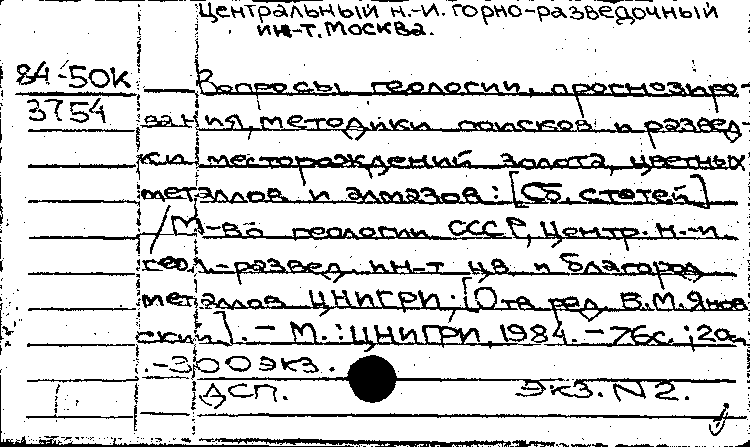 Центральный н.-и. горно-разведочный
ин-т. Москва.
84-50К Вопросы геологии, прогнозиро-
3754 вания, методики поисков и развед-
ки месторождений золота, цветных
металлов и алмазов: [Сб. статей]
/М-во геологии СССР, Центр. н.-и.
геол.-развед. ин-т цв. и благород.
металлов ЦНИГРИ; [Отв. ред. В.М. Янов
ский]. - М.: ЦНИГРИ, 1984. - 76с.; 20см
. - 300экз.
ДСП. Экз. N 2.